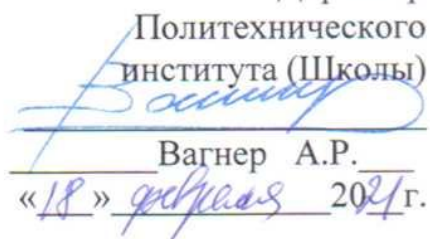 Политехнического
института (Школы)
Вагнер А.Р.
«18» февраля 2021г.